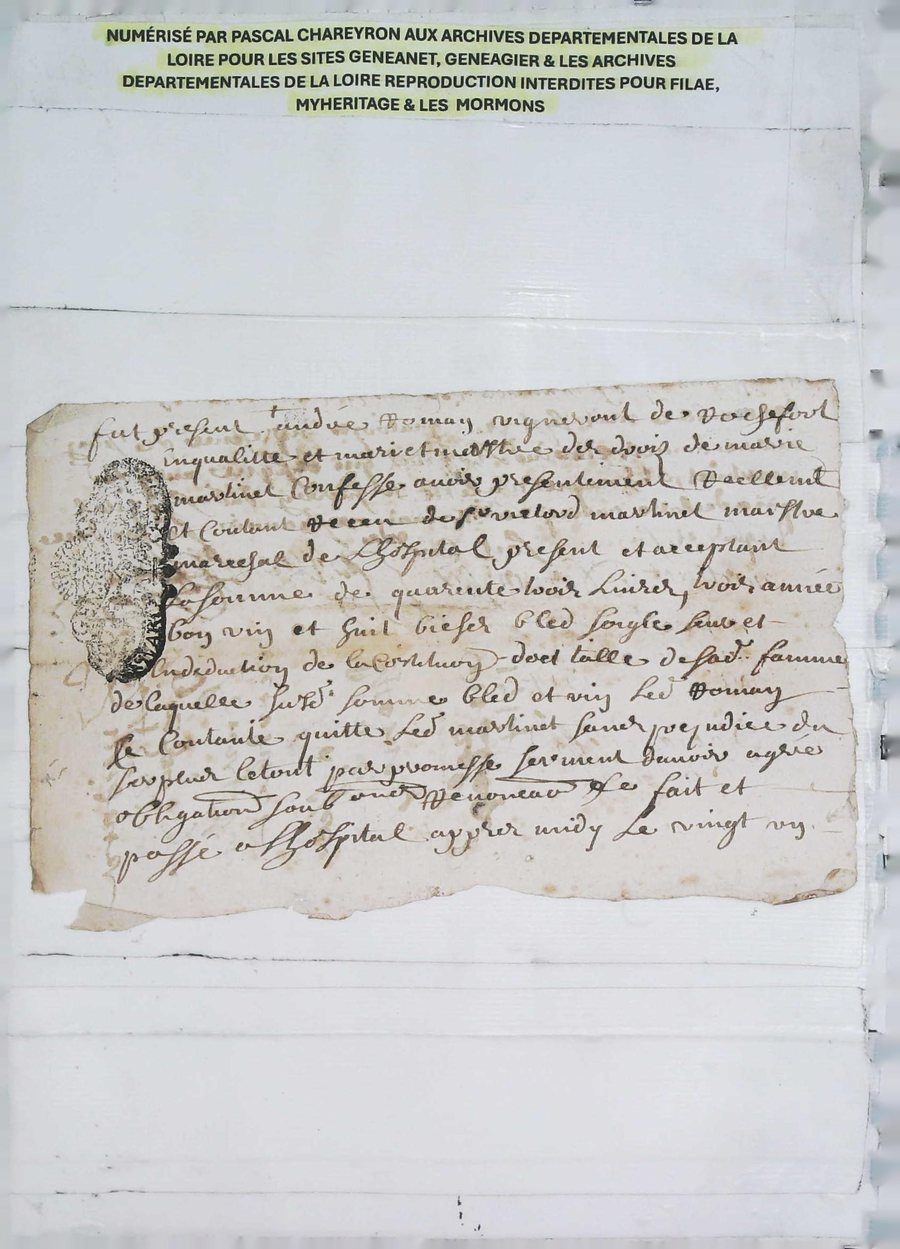 NUMÉRISÉ PAR PASCAL CHAREYRON AUX ARCHIVES DEPARTEMENTALES DE LA
LOIRE POUR LES SITES GENEANET, GENEAGIER & LES ARCHIVES
DEPARTEMENTALES DE LA LOIRE REPRODUCTION INTERDITES POUR FILAE,
MYHERITAGE & LES MORMONS
fut present andré Romay vigneront de Rochefort
Enqualitte et mari et maistre des drois de marie
martinet Confesse avoir presentiment Reellemt
et Contant Receu de sr martinet maistre
marechal de Lhospital present et acceptant
La somme de quarente trois Livres, trois année
bon vin et huit bichet bled soigle sauve et
Endeduction de la Costitution doct talle desad. famme
de laquelle susd. somme bled et vin Led. Romay
se Contante quitte Led. martinet sans prejudice du
surplus letout par promesse serment davoir agréé
obligation soub Renonciaon fait et
passé a Lhospital appres midy Le vingt